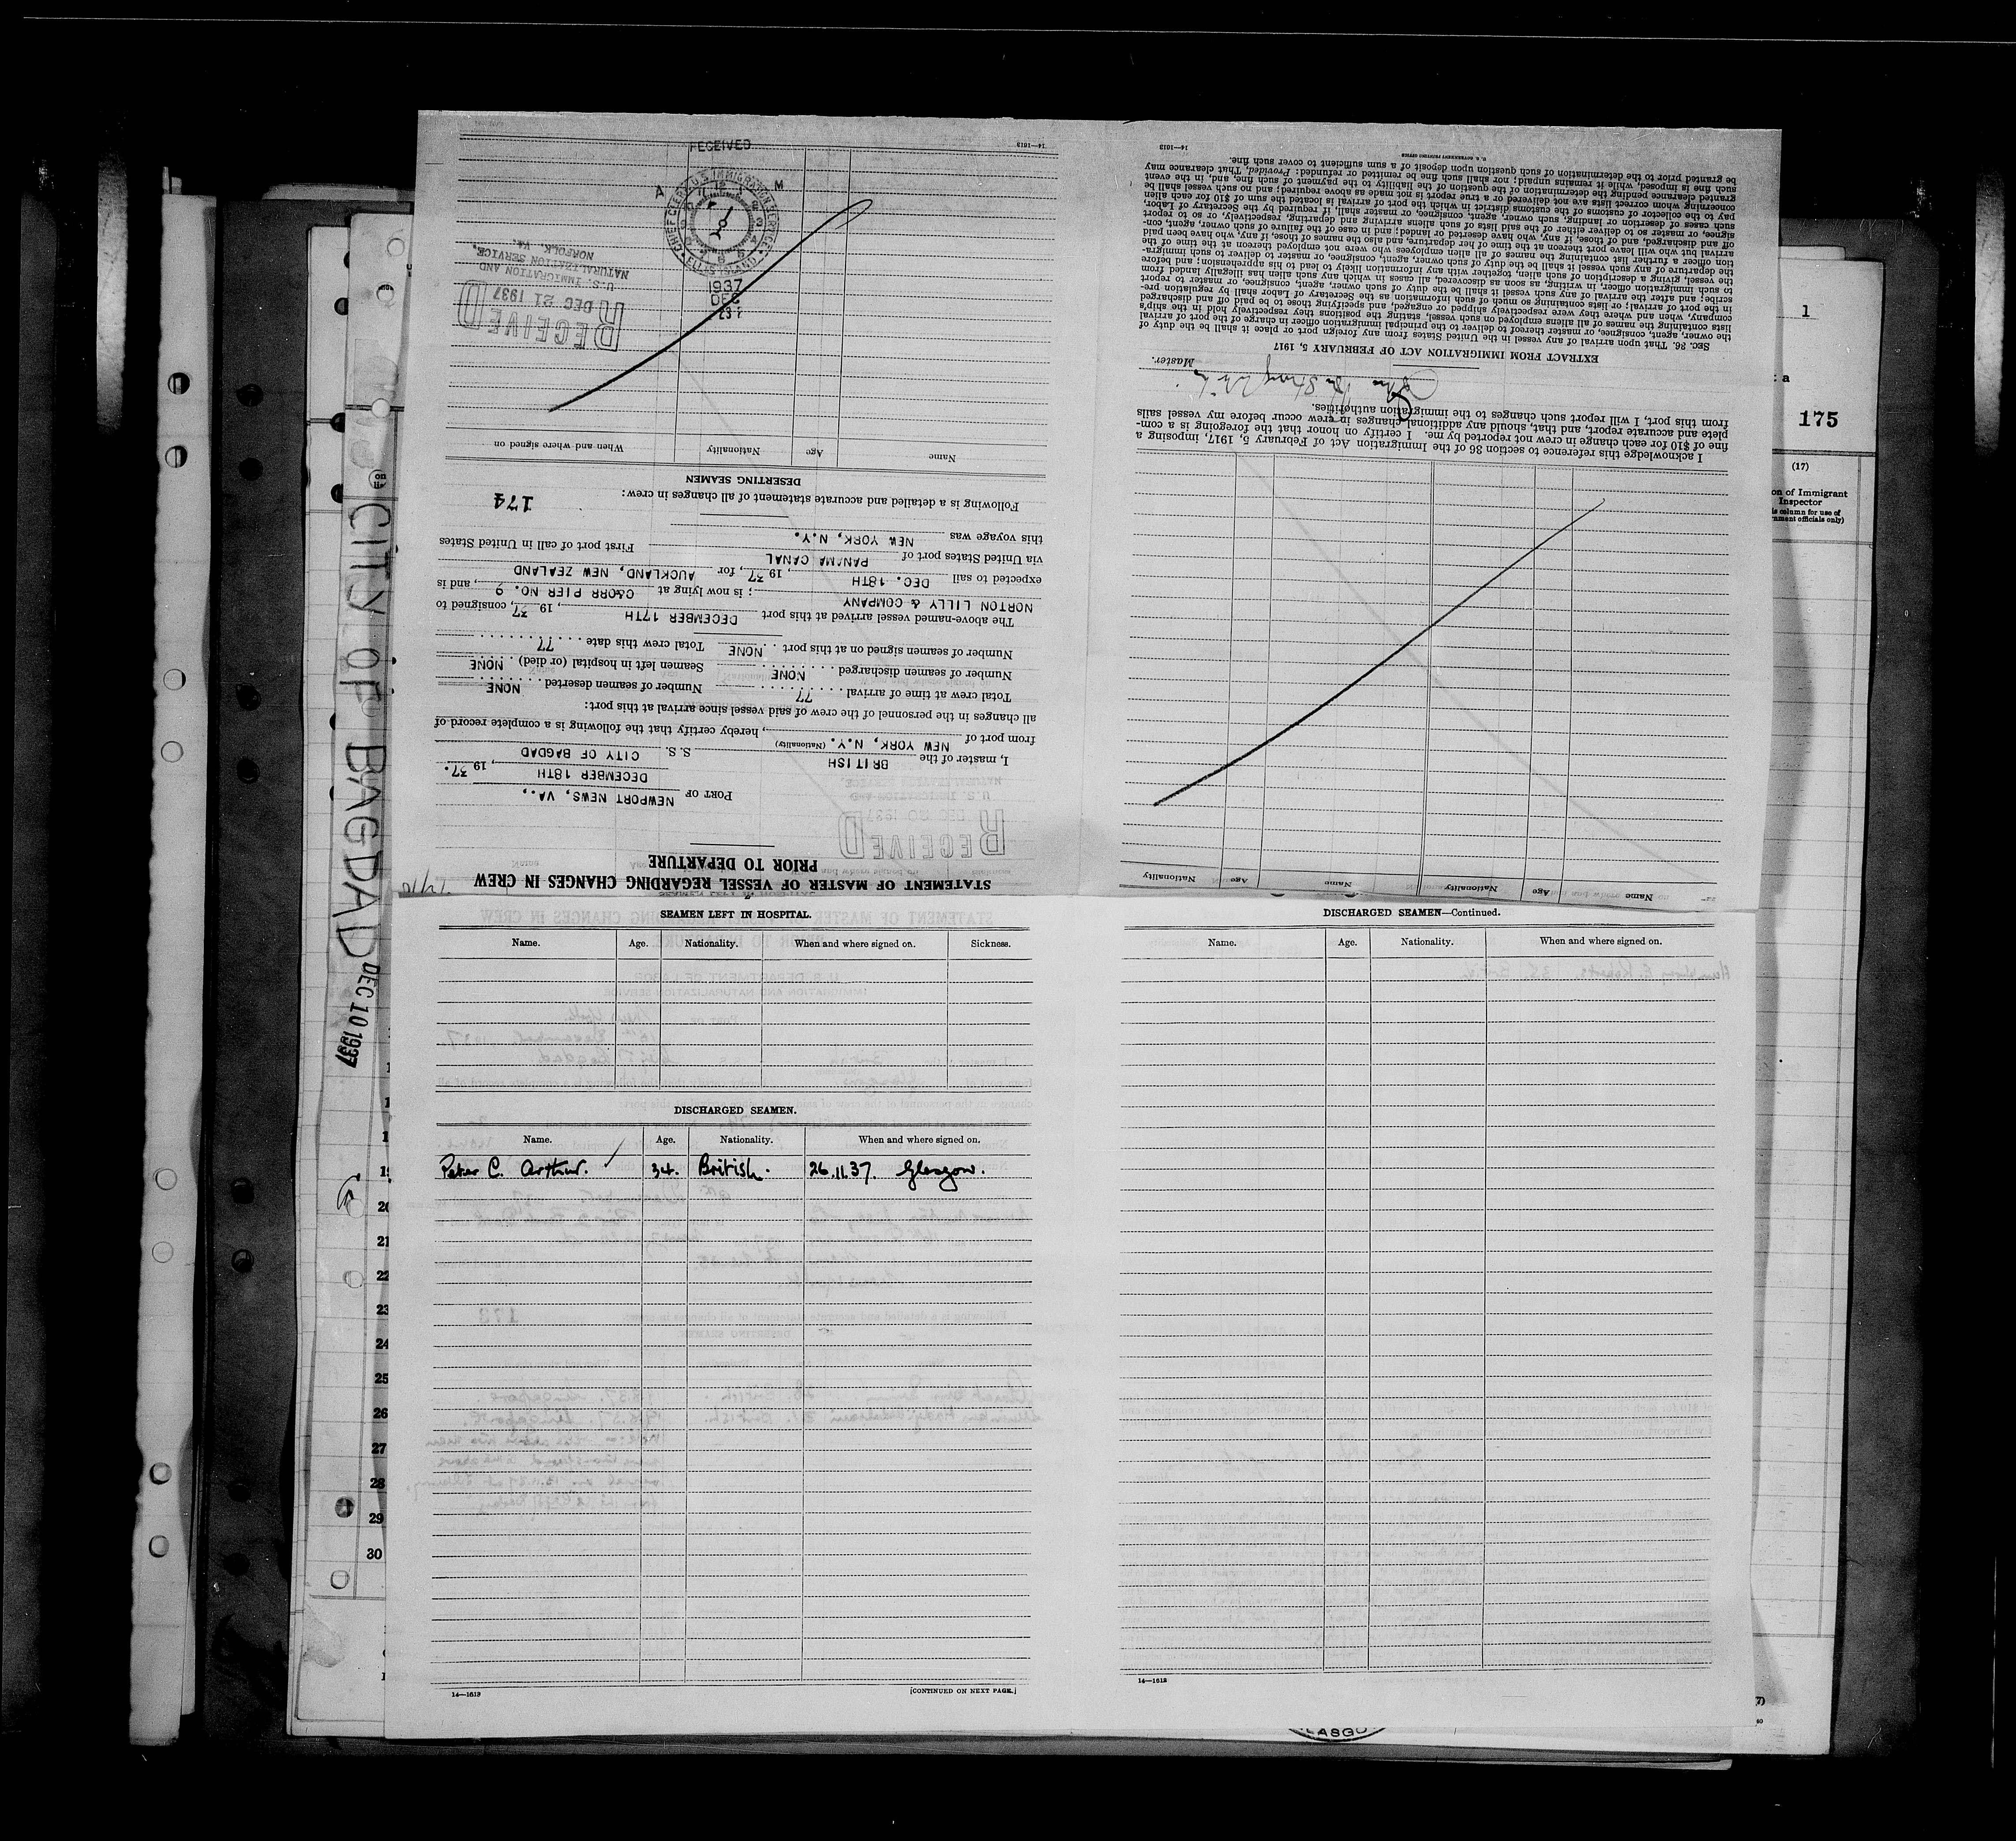 CITY OF BAGDAD DEC 10 1937
STATEMENT OF MASTER OF VESSEL REGARDING CHANGES IN CREW
PRIOR TO DEPARTURE
RECEIVED
DEC 20 1937
U. S. IMMIGRATION AND
NATURALIZATION SERVICE
PORT OF NEWPORT NEWS, VA.,
DECEMBER 18TH, 1937.
I, master of the BRITISH S. S. CITY OF BAGDAD
(Nationality)
from port of NEW YORK, N.Y., hereby certify that the following is a complete record of
all changes in the personnel of the crew of said vessel since arrival at this port:
Total crew at time of arrival 77 Number of seamen deserted NONE
Number of seamen discharged NONE Seamen left in hospital (or died) NONE
Number of seamen signed on at this port NONE Total crew this date 77
The above-named vessel arrived at this port DECEMBER 17TH, 1937, consigned to
NORTON LILLY & COMPANY; is now lying at C&ORR PIER NO. 9, and is
expected to sail DEC. 18TH, 1937, for AUCKLAND, NEW ZEALAND
via United States port of PANAMA CANAL First port of call in United States
this voyage was NEW YORK, N.Y.
Following is a detailed and accurate statement of all changes in crew: 174
DESERTING SEAMEN
Name Age Nationality When and where signed on
RECEIVED
DEC 21 1937
U.S. IMMIGRATION AND
NATURALIZATION SERVICE,
NORFOLK, VA.
RECEIVED
A M
CHIEF CLERK U.S. IMMIGRATION SERVICE
ELLIS ISLAND
1937
DEC
23
14—1613
Name Age Nationality Name Age Nationality
I acknowledge this reference to section 36 of the Immigration Act of February 5, 1917, imposing a
fine of $10 for each change in crew not reported by me. I certify on honor that the foregoing is a com-
plete and accurate report, and that, should any additional changes in crew occur before my vessel sails
from this port, I will report such changes to the immigration authorities.
Master.
EXTRACT FROM IMMIGRATION ACT OF FEBRUARY 5, 1917
SEC. 36. That upon arrival of any vessel in the United States from any foreign port or place it shall be the duty of
the owner, agent, consignee, or master thereof to deliver to the principal immigration officer in charge of the port of arrival
lists containing the names of all aliens employed on such vessel, stating the positions they respectively hold in the ship's
company, when and where they were respectively shipped or engaged, and specifying those to be paid off and discharged
in the port of arrival; or lists containing so much of such information as the Secretary of Labor shall by regulation pre-
scribe; and after the arrival of any such vessel it shall be the duty of such owner, agent, consignee, or master to report
to such immigration officer, in writing, as soon as discovered, all cases in which any such alien has illegally landed from
the vessel, giving a description of such alien, together with any information likely to lead to his apprehension; and before
the departure of any such vessel it shall be the duty of such owner, agent, consignee, or master to deliver to such immigra-
tion officer a further list containing the names of all alien employees who were not employed thereon at the time of the
arrival but who will leave port thereon at the time of her departure, and also the names of those, if any, who have been paid
off and discharged, and of those, if any, who have deserted or landed; and in case of the failure of such owner, agent, con-
signee, or master so to deliver either of the said lists of such aliens arriving and departing, respectively, or so to report
such cases of desertion or landing, such owner, agent, consignee, or master shall, if required by the Secretary of Labor,
pay to the collector of customs of the customs district in which the port of arrival is located the sum of $10 for each alien
concerning whom correct lists are not delivered or a true report is not made as above required; and no such vessel shall be
granted clearance pending the determination of the question of the liability to the payment of such fine, and, in the event
such fine is imposed, while it remains unpaid; nor shall such fine be remitted or refunded: Provided, That clearance may
be granted prior to the determination of such question upon deposit of a sum sufficient to cover such fine.
U. S. GOVERNMENT PRINTING OFFICE
14—1613
SEAMEN LEFT IN HOSPITAL.
Name. Age. Nationality. When and where signed on. Sickness.
DISCHARGED SEAMEN.
Name. Age. Nationality. When and where signed on.
Peter C. Arthur. 34. British. 26.11.37. Glasgow.
14—1613 [CONTINUED ON NEXT PAGE.]
DISCHARGED SEAMEN—Continued.
Name. Age. Nationality. When and where signed on.
14—1613
1
175
(17)
on of Immigrant
Inspector
column for use of
nment officials only)
20
21
22
23
24
25
26
27
28
29
30